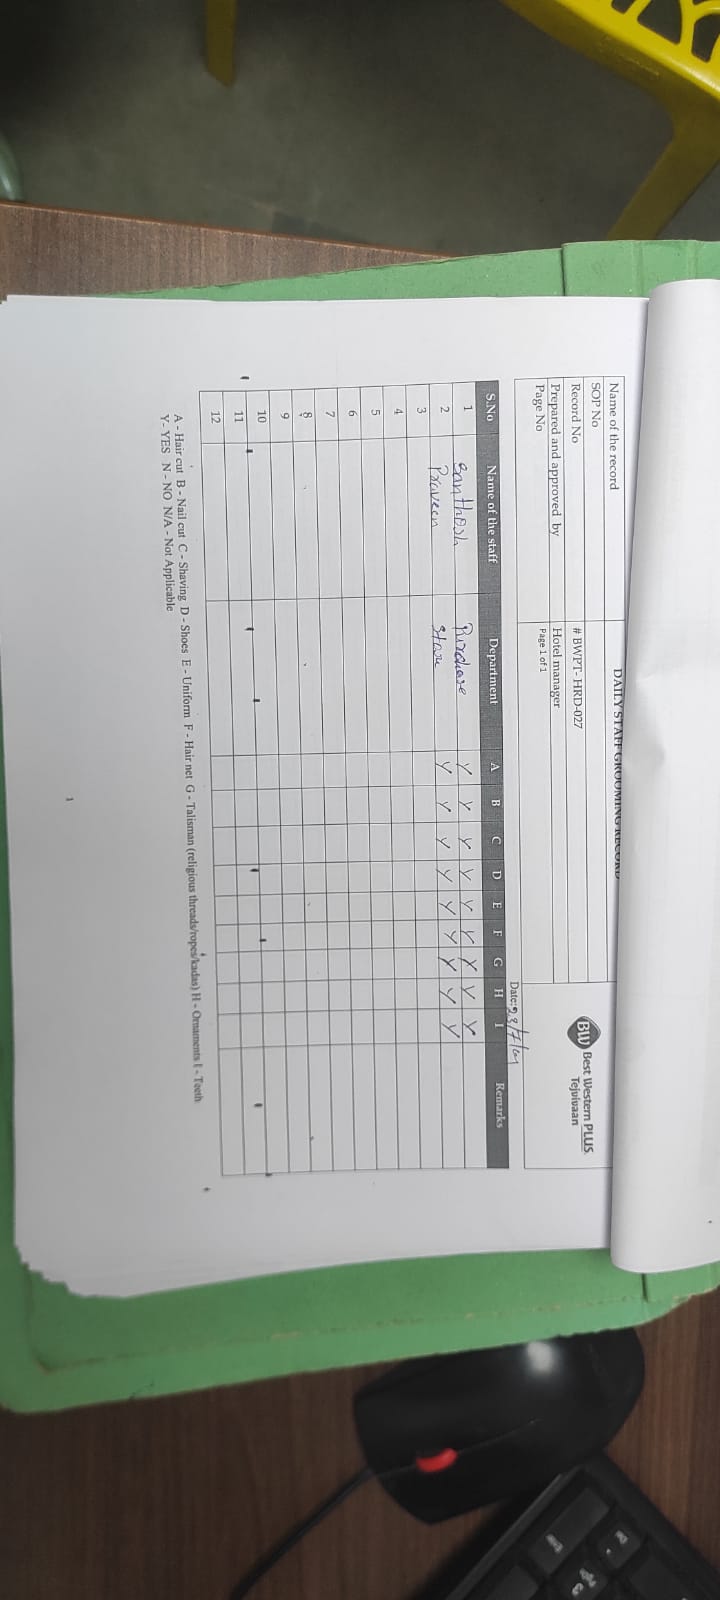 DAILY STAFF GROOMING RECORD
Name of the record
SOP No
Record No # BWPT- HRD-027
Prepared and approved by Hotel manager
Page No Page 1 of 1
BW Best Western PLUS
Tejvivaan
Date:
S.No Name of the staff Department A B C D E F G H I Remarks
1 Santhosh Purchase Y Y Y Y Y Y Y Y Y
2 Praveen Store Y Y Y Y Y Y Y Y Y
3
4
5
6
7
8
9
10
11
12
A - Hair cut B - Nail cut C - Shaving D - Shoes E - Uniform F - Hair net G - Talisman (religious threads/ropes/kadas) H - Ornaments I - Teeth
Y- YES N - NO N/A - Not Applicable
1